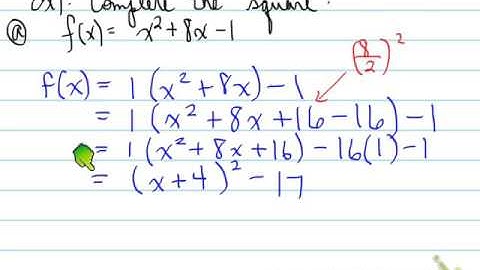 ex1. Complete the square.
ⓐ f(x) = x² + 8x - 1
(8/2)²
f(x) = 1(x² + 8x) - 1
= 1(x² + 8x + 16 - 16) - 1
= 1(x² + 8x + 16) - 16(1) - 1
= (x + 4)² - 17